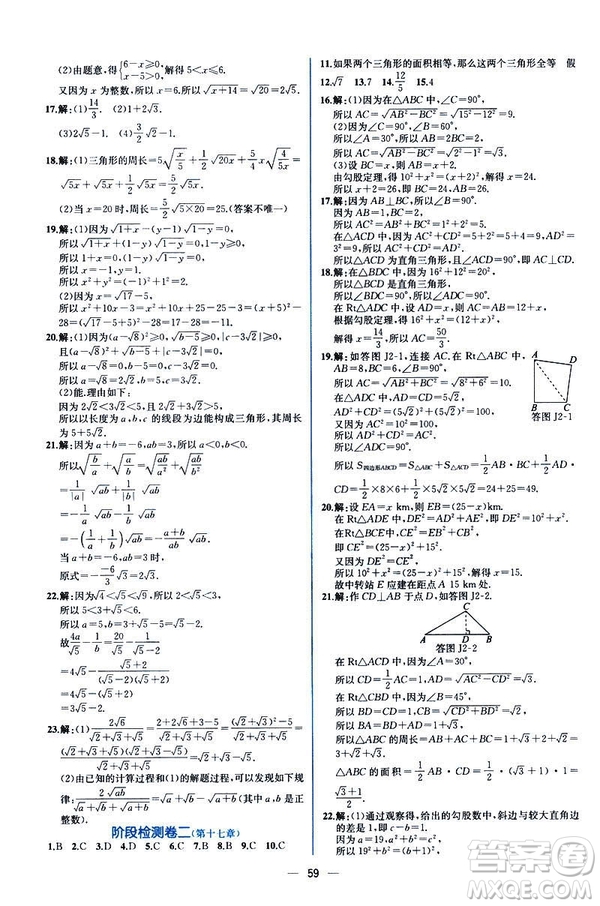 (2)由题意,得{6-x≥0, x-5>0,解得5<x≤6.
因为x为整数,所以x=6.所以√(x+14)=√20=2√5.
17.解:(1)14/3. (2)
(3)2√2-√15. (4)
18.解:(1)三角形的周长=5√(x/5)+1/2√(20x)+5/4 x√(4/(5x))=
√(5x)+√(5x)+1/2√(5x)=5/2√(5x).
(2)当x=20时,周长=5/2√(5×20)=25.(答案不唯一)
19.解:(1)因为√(1+x)-(y-1)√(1-y)=0,
所以√(1+x)+(1-y)√(1-y)=0.
所以1+x=0,1-y=0.
所以x=-1,y=1.
所以
(2)因为x=√17-5,
所以x²+10x-3=x²+10x+25-28=(x+5)²-
28=(√17-5+5)²-28=17-28=-11.
20.解:(1)因为(a-√8)²≥0,√(b-5)≥0,|c-3√2|≥0,
且(a-√8)²+√(b-5)+|c-3√2|=0,
所以a-√8=0,b-5=0,c-3√2=0.
所以a=√8=2√2,b=5,c=3√2.
(2)能.理由如下:
因为2√2<3√2<5,2√2+3√2=5√2>5,
所以以长度为a,b,c的线段为边能构成三角形,其周长
为5+5√2.
21.解:因为a+b=-6,ab=3,所以a<0,b<0.
所以√(b/a)+√(a/b)=√(ab/a²)+√(ab/b²)
=1/|a|√ab+1/|b|√ab
=-1/a√ab-1/b√ab
=-(1/a+1/b)√ab=-(a+b)/(ab)√ab.
当a+b=-6,ab=3时,
原式=-(-6)/3√3=2√3.
22.解:因为√4<√5<√9,所以2<√5<3.
所以
故4a/√5-1/b=
=4√5-(√5+2)/((√5-2)(√5+2))
=4√5-√5-2
=3√5-2.
23.解:(1)2√6/(√2+√3+√5)=(2+2√6+3-5)/(√2+√3+√5)=((√2+√3)²-(√5)²)/(√2+√3+√5)=
((√2+√3+√5)(√2+√3-√5))/(√2+√3+√5)=√2+√3-√5.
(2)由已知的计算过程和(1)的解题过程,可以发现如下规
律:2√ab/(√a+√b+√(a+b))=√a+√b-√(a+b)(其中a,b均为正
整数).
阶段检测卷二(第十七章)
1.B 2.C 3.D 4.D 5.C 6.B 7.C 8.B 9.C 10.C
11.如果两个三角形的面积相等,那么这两个三角形全等 假
12.√7 13.7 14.12/5 15.4
16.解:(1)因为在△ABC中,∠C=90°,
所以AC=√(AB²-BC²)=√(15²-12²)=9.
(2)因为∠C=90°,
所以AC=
(3)设BC=x,则
由勾股定理,得
解得x=24.
所以x+2=26,即AB=26.
17.解:因为AB⊥BC,所以∠B=90°.
所以
在△ADC中,AC²+CD²=5+4=9,AD²=9,
所以AC²+CD²=AD².
所以△ACD为直角三角形,且∠ACD=90°,即AC⊥CD.
18.解:因为16²+12²=20²,
所以BD²+DC²=BC².
所以△BCD是直角三角形.
所以∠BDC=90°,
所以∠ADC=90°.
在Rt△ADC中,设AD=x,则AC=16+x.
根据勾股定理,得x²+12²=(16+x)².
解得 所以AC=50/3.
19.解:如答图J2-1,连接AC.在Rt△ABC中,
AB=8,BC=6,∠B=90°,
所以AC=√(AB²+BC²)=√(8²+6²)=10.
在△ADC中,CD=AD=5√2,
AD²+CD²=(5√2)²+(5√2)²=100,
因为AC²=10²=100,
所以AD²+CD²=AC².
所以∠ADC=90°.
所以S四边形ABCD=S△ABC+S△ACD=1/2AB·BC+1/2AD·
CD=1/2×8×6+1/2×5√2×5√2=24+25=49.
A
D
B
C
答图J2-1
20.解:设EA=x km,则EB=(25-x)km.
在Rt△ADE中,由勾股定理,得DE²=10²+x².
在Rt△BCE中,由勾股定理,得CE²=15²+(25-x)².
由题意,可知DE=CE,
所以10²+x²=15²+(25-x)².
解得x=15.
故中转站E应建在距点A 15 km处.
21.解:作CD⊥AB于点D,如答图J2-2.
C
A
D
B
答图J2-2
在Rt△ACD中,因为∠A=30°,
所以CD=1/2AC=1,AD=√(AC²-CD²)=√3.
在Rt△CDB中,因为∠B=45°,
所以BD=CD=1,BC=√(CD²+BD²)=√2.
所以BA=BD+AD=1+√3.
所以△ABC的周长=AB+AC+BC=√3+3+√2,
△ABC的面积=1/2AB·CD=1/2×(√3+1)×1=
(√3+1)/2.
22.解:(1)通过观察,得给出的勾股数中,斜边与较大直角边
59